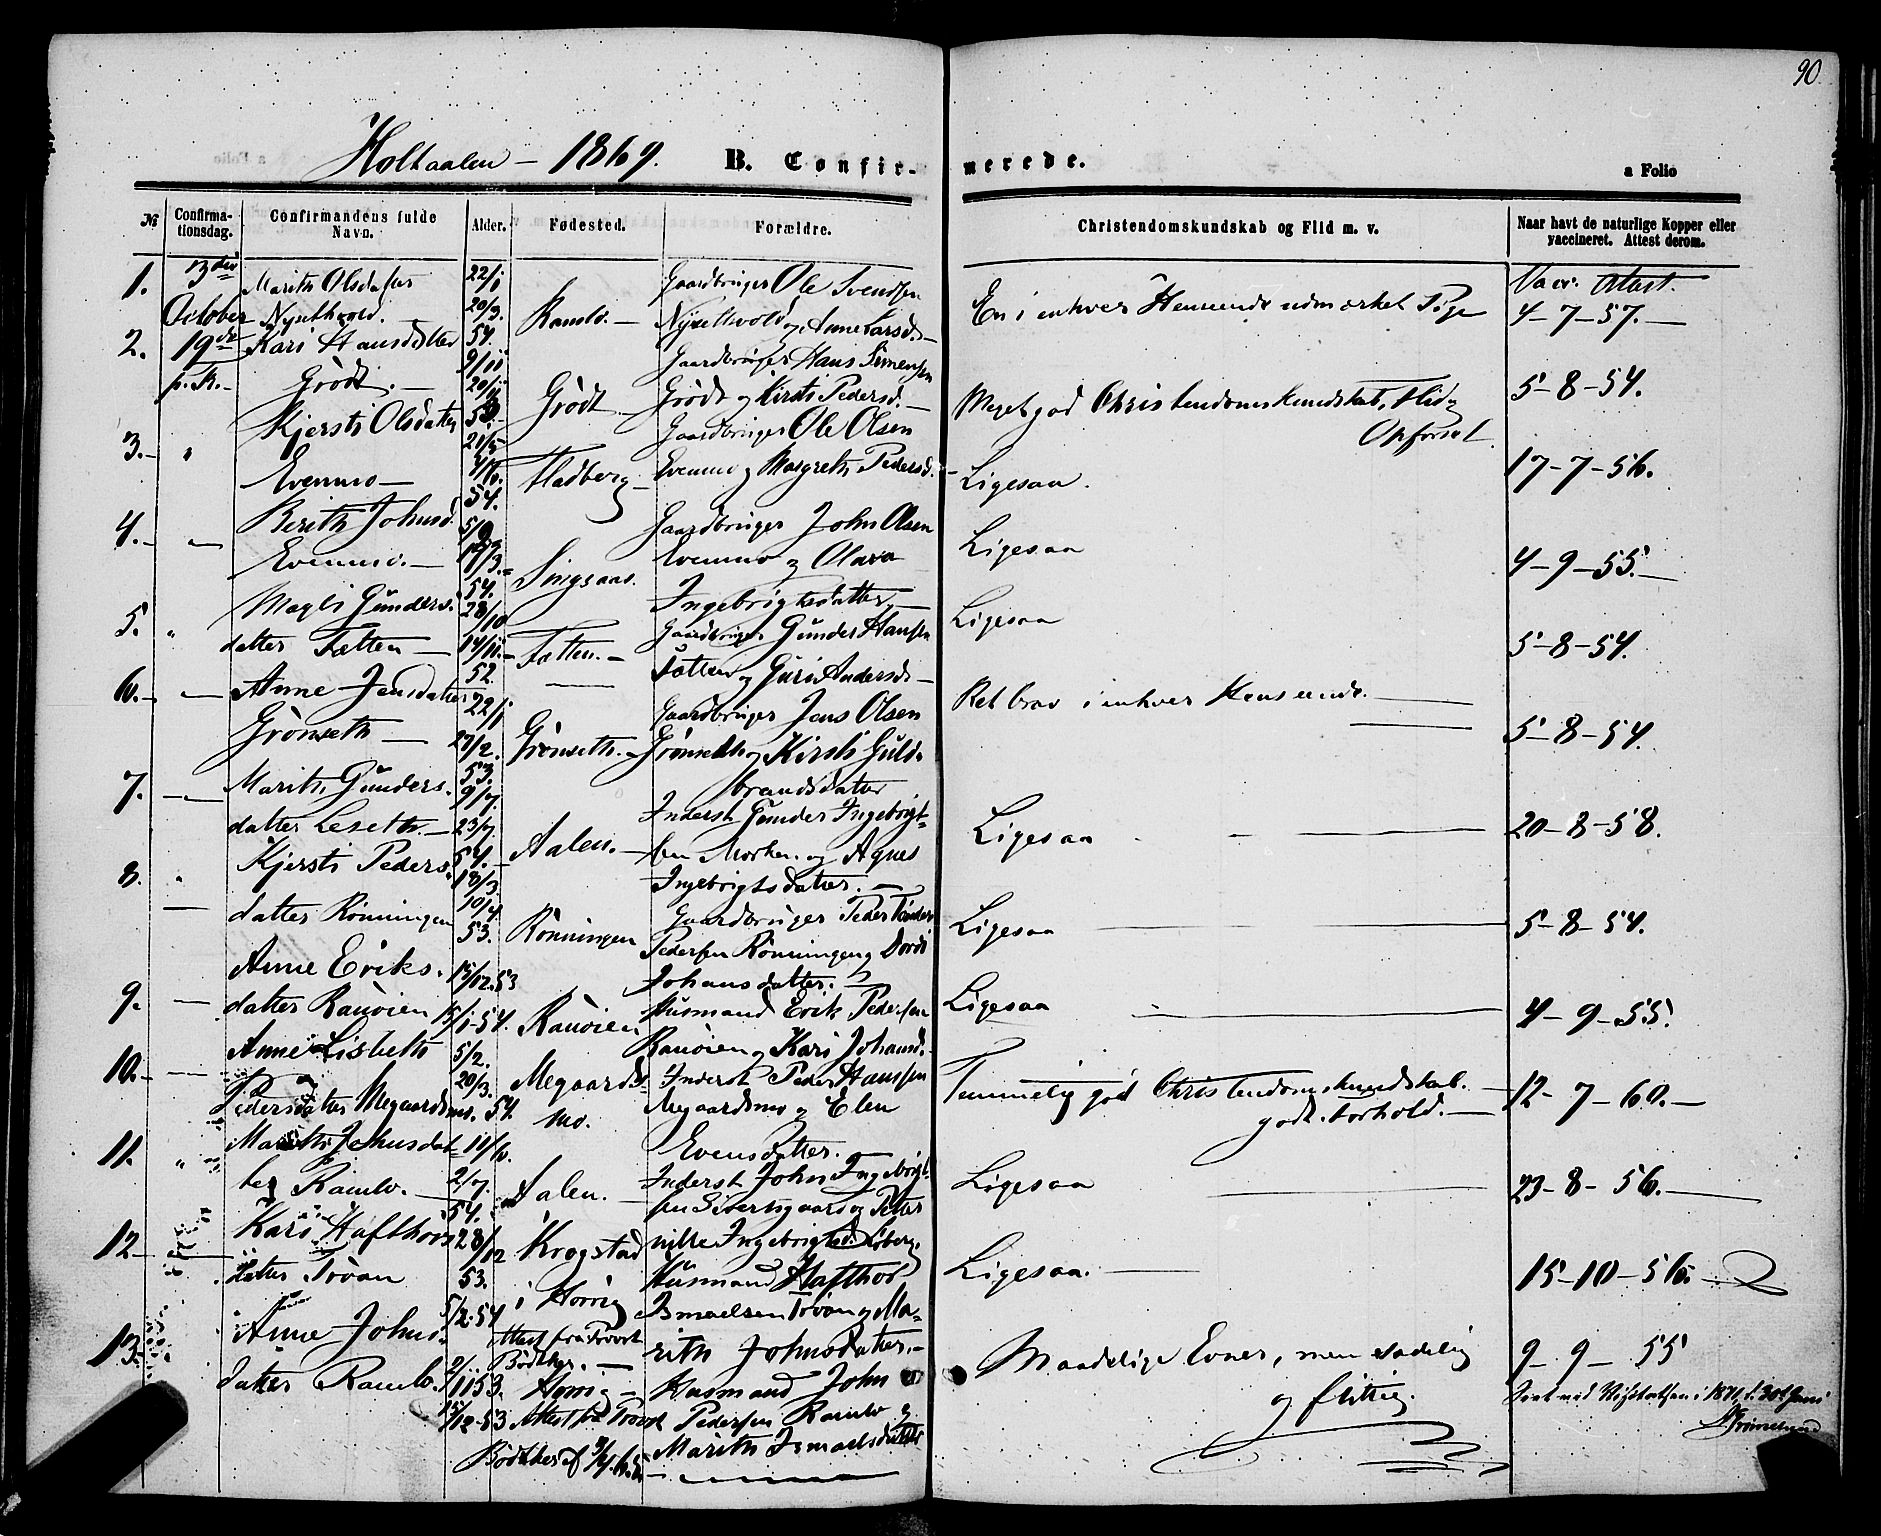 90
Holtaalen – 1869. B. Confirmerede.
a Folio
№ Confirmationsdag. Confirmandens fulde Navn. Alder. Fødested. Forældre. Christendomskundskab og Flid m. v. Naar havt de naturlige Kopper eller vaccineret. Attest derom.
1. 3die October Marith Olsdatter 22/1 Gaardbruger Ole Svendsen Vacc. Attest.
20/3. 54. Ramlo. – og Anne Larsd. – En i enhver Henseende udmærket Pige 4–7–57. –
2. 19de p. Tr. – Kari Hansdatter 9/11 Gaardbruger Hans Simensen
Grödt. – 20/11 Grödt Grödt og Kirsti Pedersd. – Meget god Christendomskundskab, Flid og Opførsel 5–8–54.
3. – " Kjersti Olsdatter Gaardbruger Ole Olsen
Evenmo – 54. Hladberg – Evenmo og Margreth Pedersd. – Ligesaa. 17–7–56.
4. – – Berith Johnsd. Gaardbruger John Olsen
Evenmo. – 54. Singsaas. Evenmo og Olava Ingebrigtsdatter – Ligesaa 4–9–55. –
5. " Magli Gunders. 28/10 Gaardbruger Gunder Hansen
datter Tætten – 14/11. – 52. Tætten. – Tætten og Guri Andersd – Ligesaa 5–8–54.
6. – – Anne Jensdatter 22/1 Gaardbruger Jens Olsen
Grönseth – 27/2. 53. Grönseth. – Grönseth og Kirsti Guldbrandsdatter Ret brav i enhver Henseende. – 5–8–54.
7. – Marith Gunders. 9/7. Inderst Gunder Ingebrigt=
datter Leseth. – 23/7. 54. Aalen. – sen Morken. og Agnes Ingebrigtsdatter. – Ligesaa – 20–8–58.
8. " Kjersti Peders. 18/3. Gaardbruger Peder
datter Rönningen 10/4 53. Rönningen Pedersen Rönningen og Dordi Johansdatter. – Ligesaa – 5–8–54.
9. – Anne Eriks. 15/12. 53 Husmand Erik Pedersen
datter Rauöien 15/1–54. Rauöien Rauöien og Kari Johansd. – Ligesaa – 4–9–55.
10. – – Anne Lisbeth 5/2. Inderst Peder Hansen
Pedersdatter Megaardsmo. 20/3. 54. Megaardsmo. Megaardsmo og Elen Evensdatter. Temmelig god Christendomskundskab. – godt Forhold. – 12–7–60. –
11. " – Marith Johnsdat= 11/6. Inderst John Ingebrigt=
ter Ramlo. – 2/7. 54. Aalen. – sen Sivertsgaard og Petter
nille Ingebrigtsd. Löberg. Ligesaa – 23–8–56. –
12 – Kari Hafthors 28/12 53. Krogstad Husmand Hafthor
datter Tröan 5/2. 54 i Horrig Ismaelsen Tröan og Marith Johnsdatter. – Ligesaa. – 15–10–56. –
Attest fra Provst Bödtker. –
13. Anne Johns. Horrig – Husmand John
datter Ramlo. 53. 15/12–53 Attest fra Provst Pedersen Ramlo og
Bödtker af Marith Ismaelsdatter Maadelige Evner, men sædelig og flittig. 9–9–55